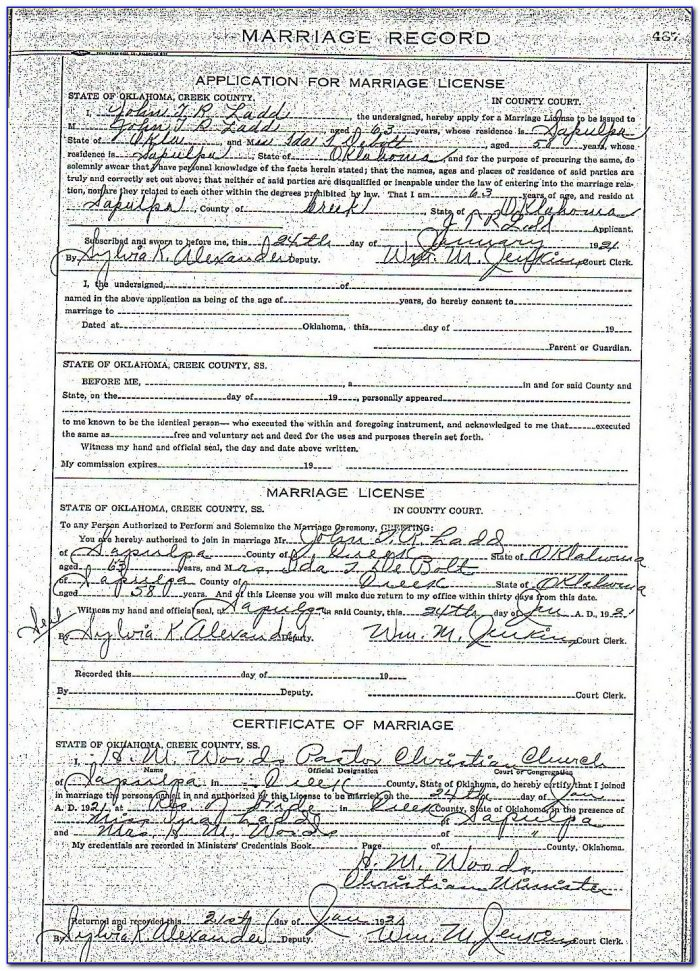 MARRIAGE RECORD 487
APPLICATION FOR MARRIAGE LICENSE
STATE OF OKLAHOMA, CREEK COUNTY,
IN COUNTY COURT.
I, John T. R. Ladd the undersigned, hereby apply for a Marriage License to be issued to
M John T R Ladd aged 63 years, whose residence is Sapulpa
State of Okla and Mrs Ida aged 58 years, whose
residence is Sapulpa, State of Oklahoma and for the purpose of procuring the same, do
solemnly swear that I have personal knowledge of the facts herein stated; that the names, ages and places of residence of said parties are
truly and correctly set out above; that neither of said parties are disqualified or incapable under the law of entering into the marriage rela-
tion, nor are they related to each other within the degrees prohibited by law. That I am 63 years of age, and reside at
Sapulpa, County of Creek, State of Oklahoma
J T R Ladd Applicant.
Subscribed and sworn to before me, this 24th day of January 1921
By Sylvia K. Alexander Deputy. Wm. M. Jenkins Court Clerk.
I, the undersigned, of
named in the above application as being of the age of years, do hereby consent to
marriage to
Dated at Oklahoma, this day of 19
Parent or Guardian.
STATE OF OKLAHOMA, CREEK COUNTY, SS.
BEFORE ME, , a in and for said County and
State, on the day of 19 , personally appeared
to me known to be the identical person— who executed the within and foregoing instrument, and acknowledged to me that executed
the same as free and voluntary act and deed for the uses and purposes therein set forth.
Witness my hand and official seal, the day and date above written.
My commission expires 19
MARRIAGE LICENSE
STATE OF OKLAHOMA, CREEK COUNTY, SS. IN COUNTY COURT.
To any Person Authorized to Perform and Solemnize the Marriage Ceremony, GREETING:
You are hereby authorized to join in marriage Mr. John T. R. Ladd
of Sapulpa County of Creek State of Oklahoma
aged 63 years, and Mrs, Ida L De Bolt
of Sapulpa County of Creek State of Oklahoma
aged 58 years. And of this License you will make due return to my office within thirty days from this date.
Witness my hand and official seal, at Sapulpa in said County, this 24th day of Jan A. D., 1921
Seal
By Sylvia K. Alexander Deputy. Wm. M. Jenkins Court Clerk.
Recorded this day of 19
By Deputy. Court Clerk.
CERTIFICATE OF MARRIAGE
STATE OF OKLAHOMA, CREEK COUNTY, SS.
I, H. M. Woods Pastor Christian Church
Name Official Designation Court or Congregation
of Sapulpa in Creek County, State of Oklahoma, do hereby certify that I joined
in marriage the persons named in and authorized by this License to be married, on the 24th day of Jan
A. D. 1921, at Res. of Bride in Creek County, State of Oklahoma, in the presence of
Miss Ladd of Sapulpa
and Mrs. H M. Woods of "
My credentials are recorded in Ministers' Credentials Book Page of County, Oklahoma.
H. M. Woods,
Christian Minister
Returned and recorded this day of Jan 192
By Sylvia K. Alexander Deputy. Wm. M. Jenkins Court Clerk.